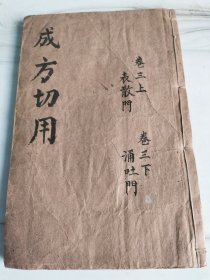 成方切用
卷三上
表散門
卷三下
涌吐門